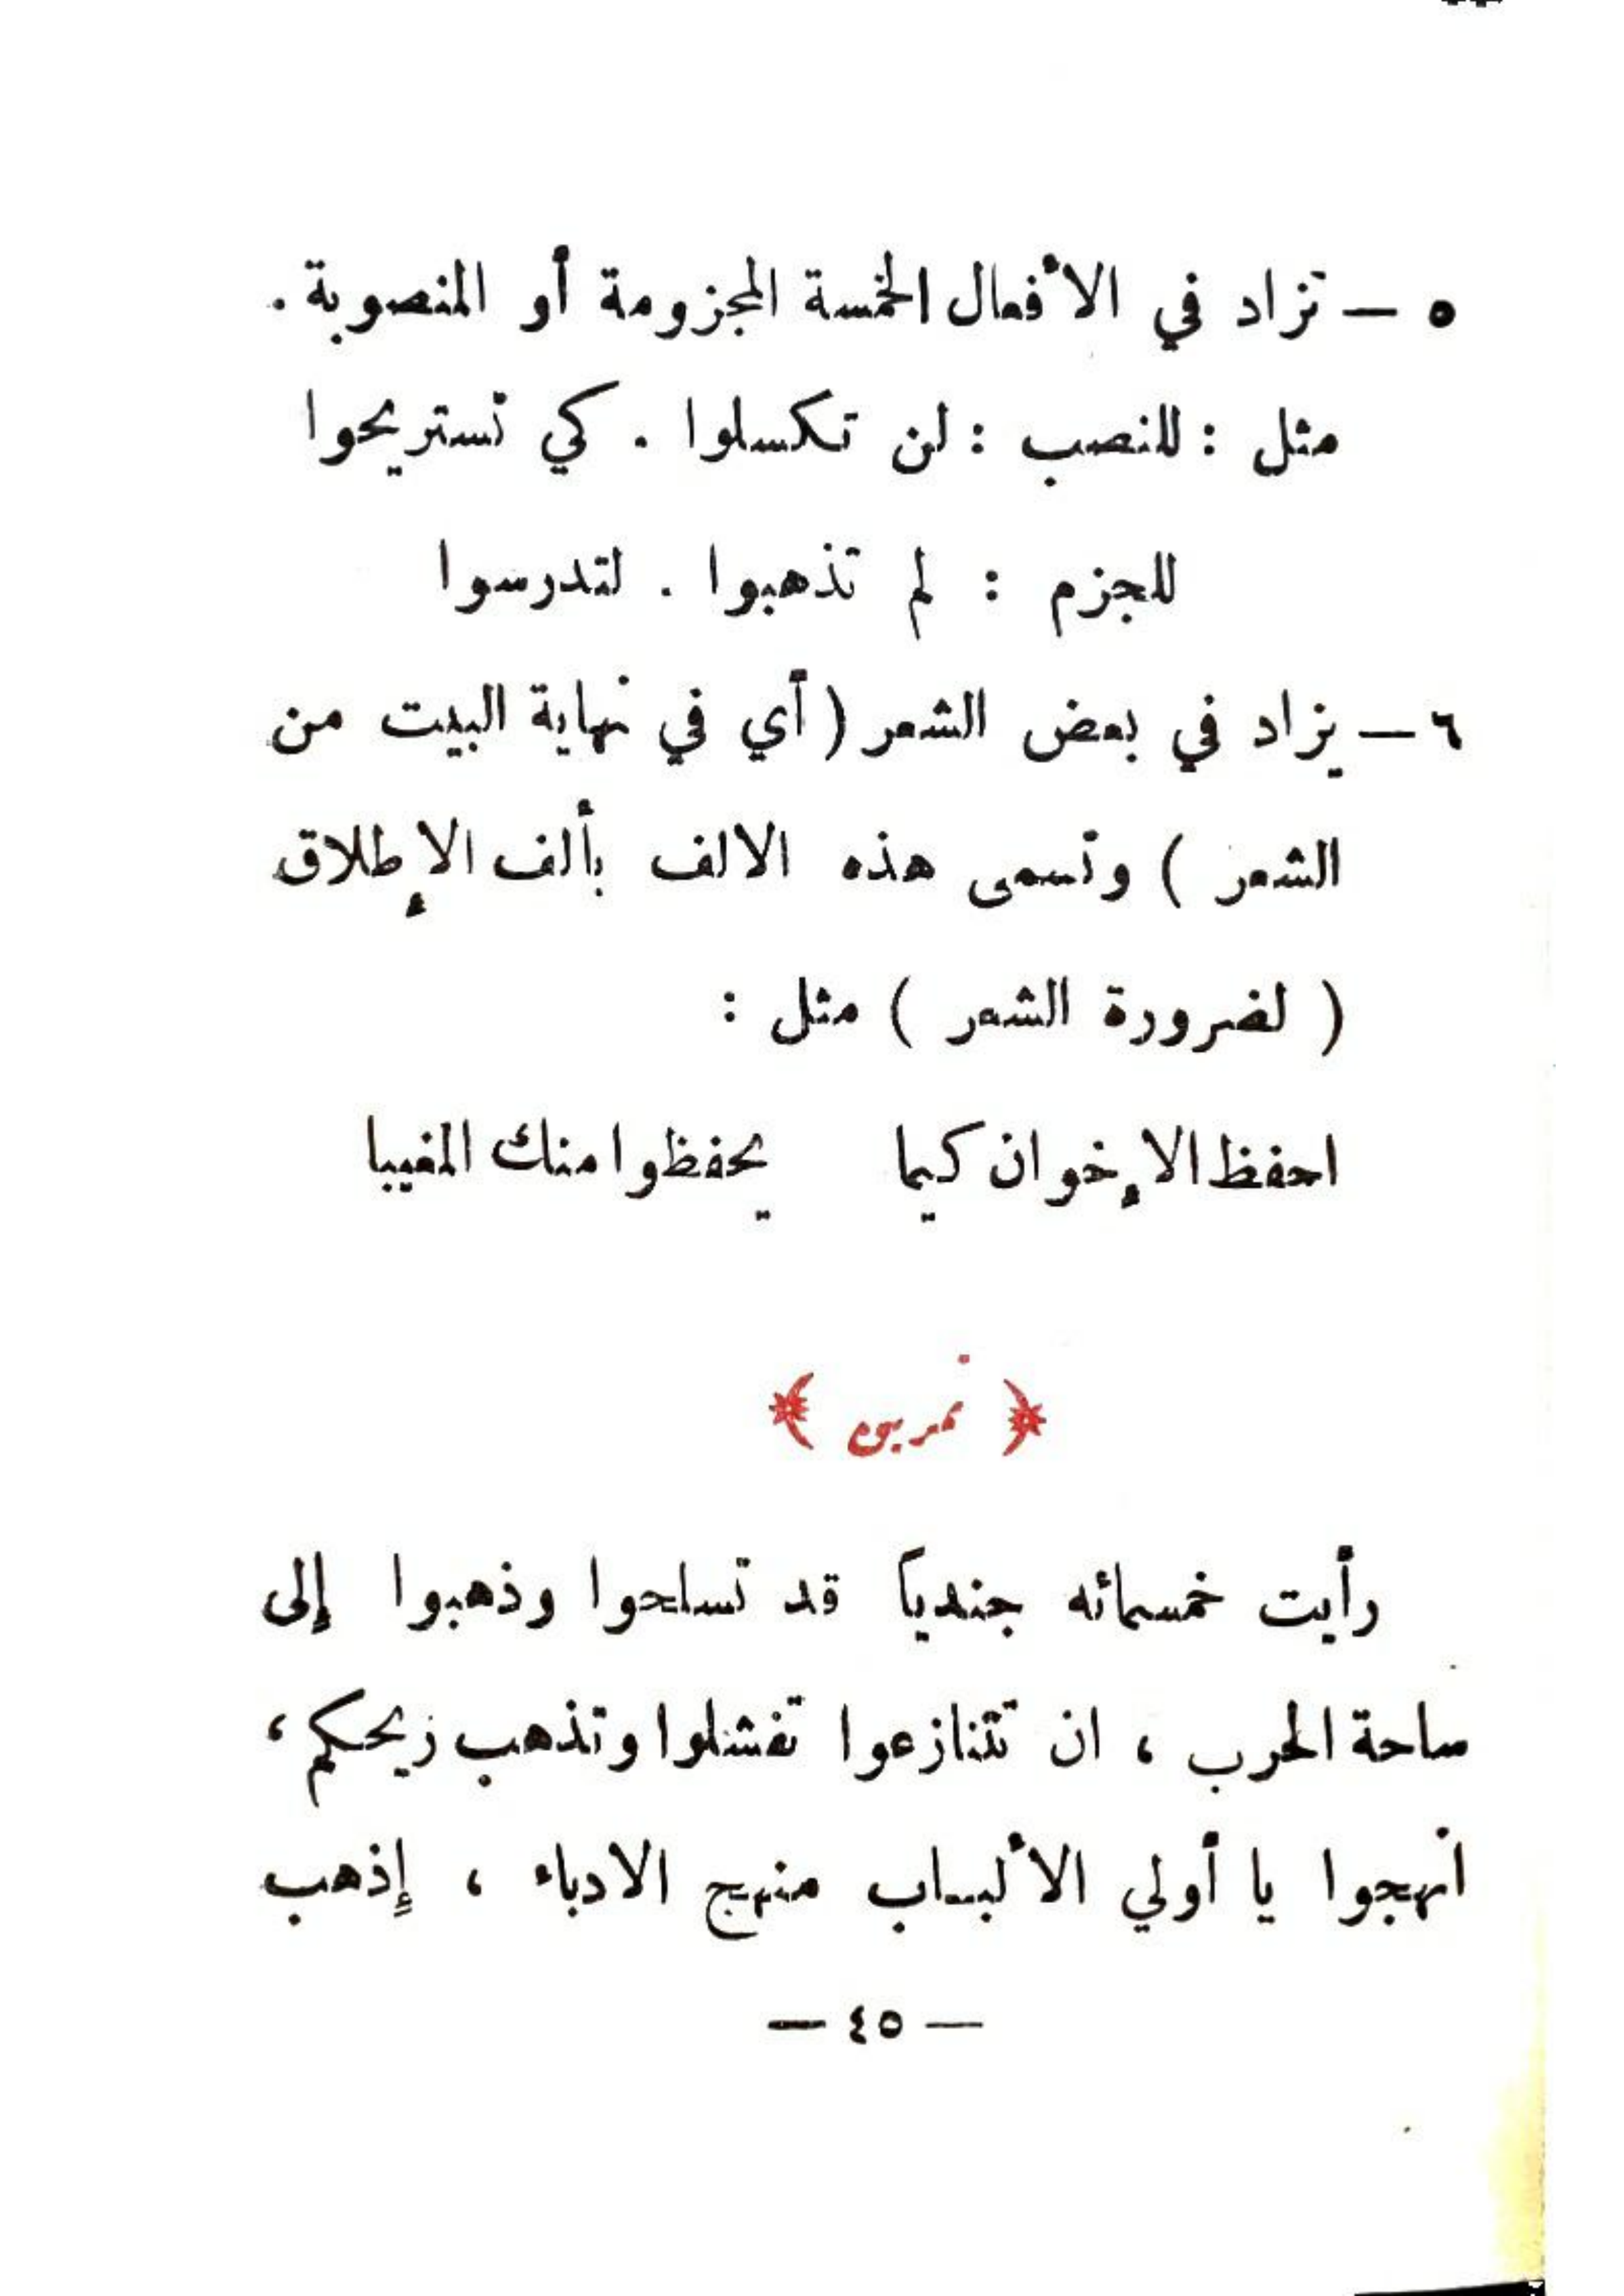 ٥ — تزاد في الأفعال الخمسة المجزومة أو المنصوبة .
مثل : للنصب : لن تكسلوا . كي تستريحوا
للجزم : لم تذهبوا . لتدرسوا
٦ — يزاد في بعض الشعر ( أي في نهاية البيت من
الشعر ) وتسمى هذه الالف بألف الإطلاق
( لضرورة الشعر ) مثل :
احفظ الإخوان كيما يحفظوا منك المغيبا
﴿ تمرين ﴾
رأيت خمسمائه جندياً قد تسلحوا وذهبوا إلى
ساحة الحرب ، ان تتنازعوا تفشلوا وتذهب زيحكم ،
انهجوا يا أولي الألباب منهج الادباء ، إذهب
— ٤٥ —